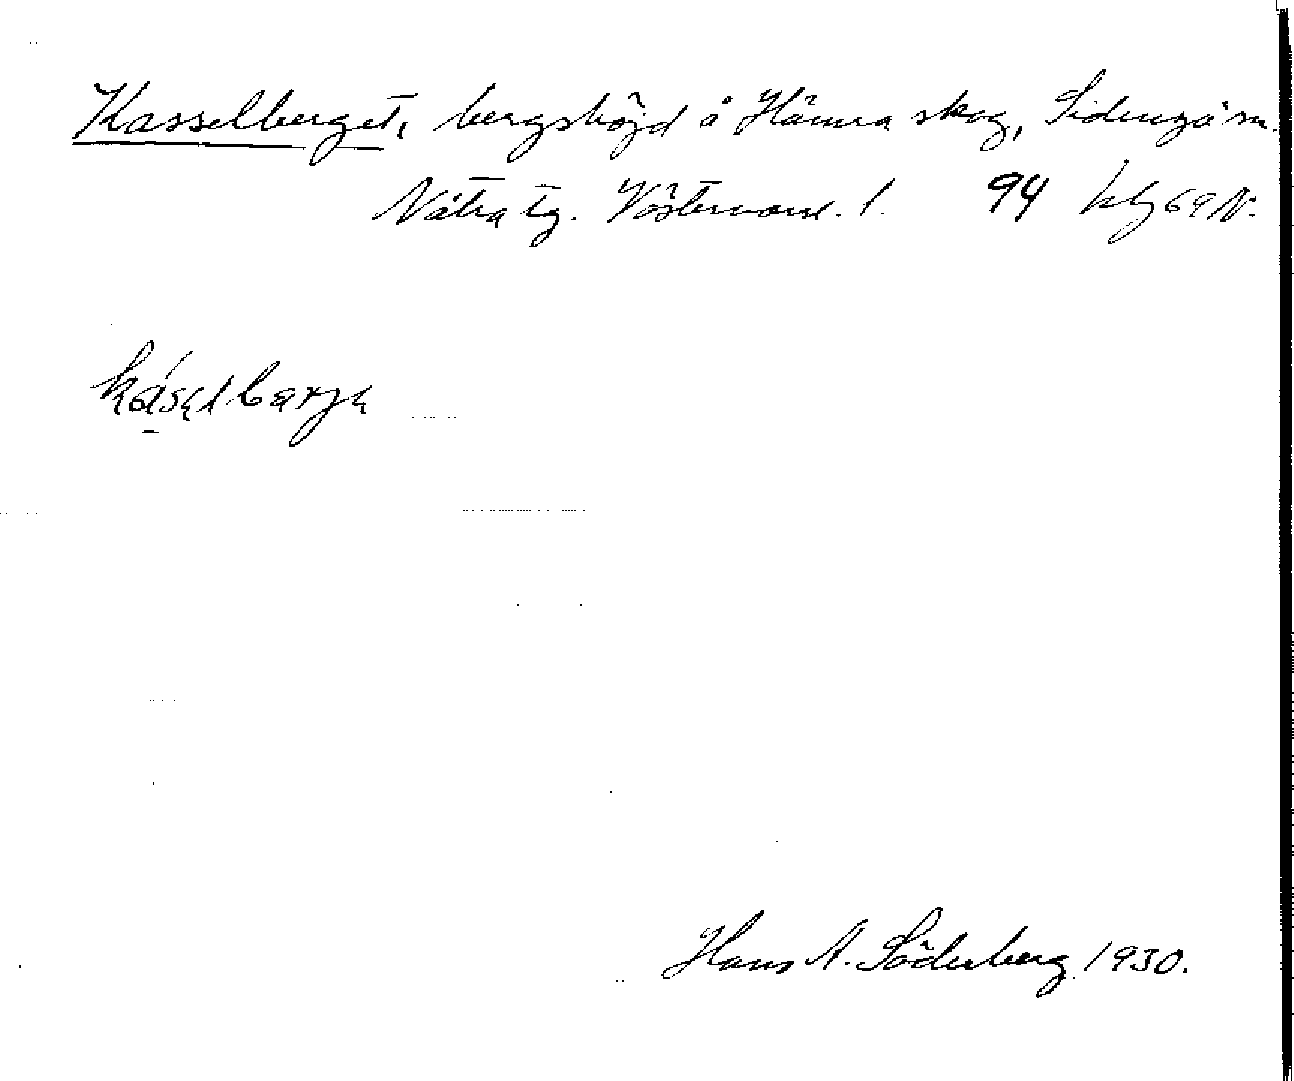 Kasselberget, bergshöjd å Hämra skog, Sidensjö sn.
Nätra tg. Västernorrl. l. 94 klg 69 N.
kásəlbærjə
Hans A. Söderberg 1930.